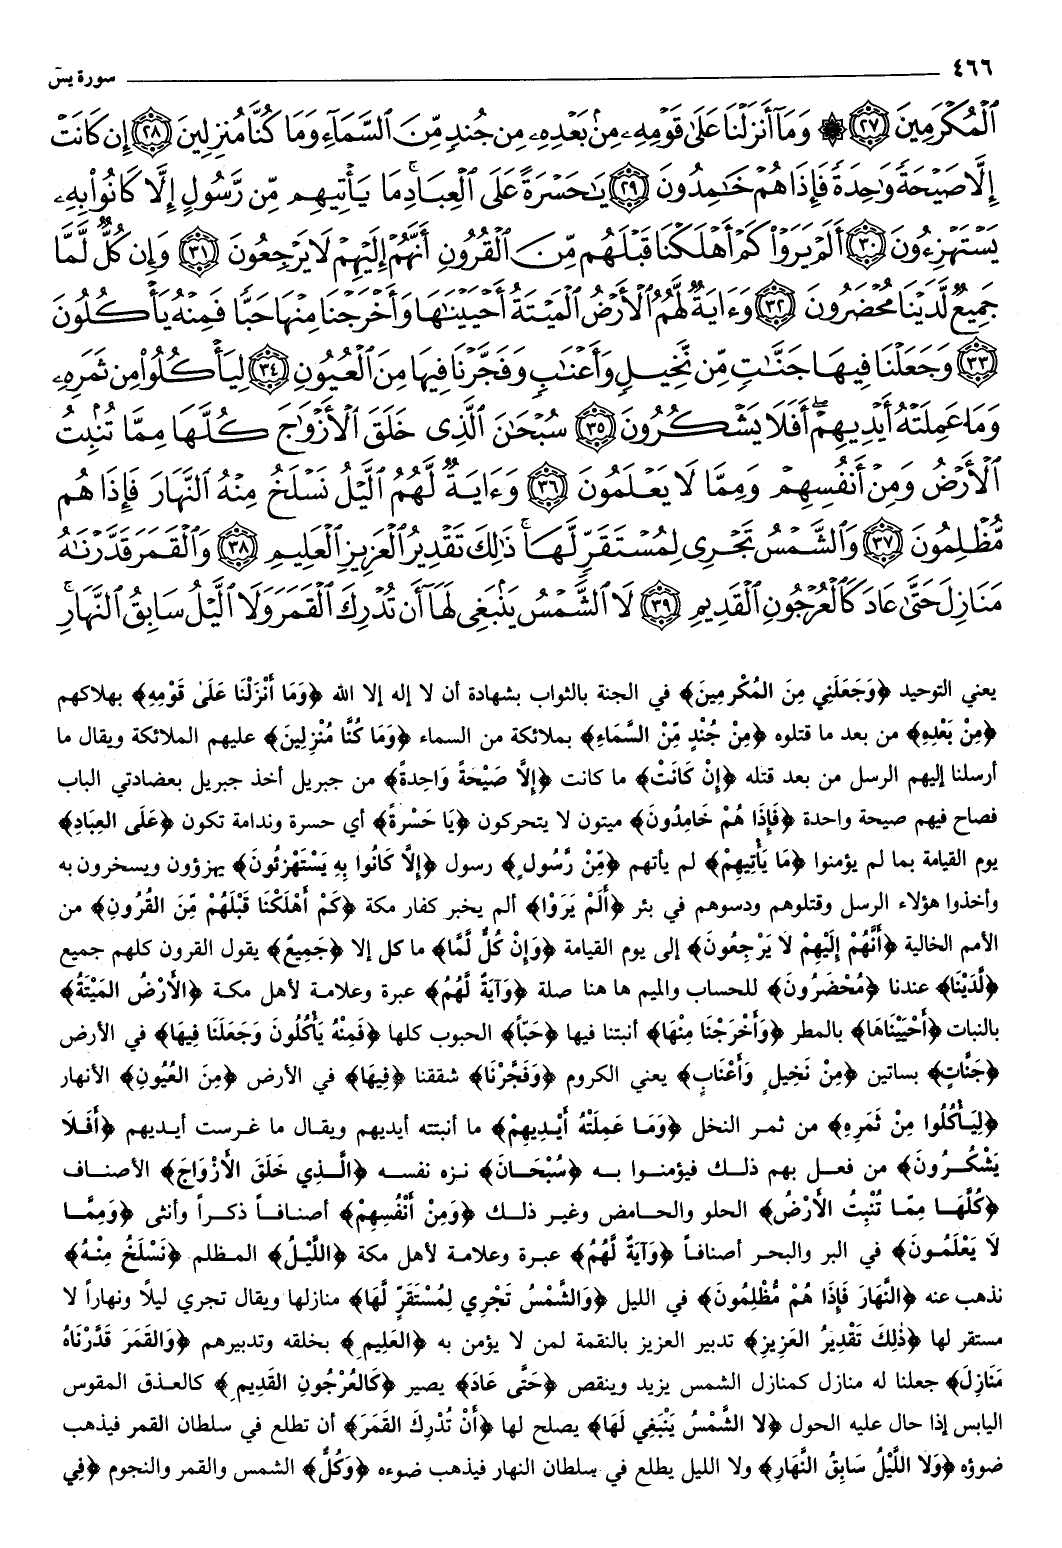 ٤٦٦ سورة يسٓ
ٱلۡمُكۡرَمِينَ ٢٧ ۞ وَمَآ أَنزَلۡنَا عَلَىٰ قَوۡمِهِۦ مِنۢ بَعۡدِهِۦ مِن جُندٖ مِّنَ ٱلسَّمَآءِ وَمَا كُنَّا مُنزِلِينَ ٢٨ إِن كَانَتۡ
إِلَّا صَيۡحَةٗ وَٰحِدَةٗ فَإِذَا هُمۡ خَٰمِدُونَ ٢٩ يَٰحَسۡرَةً عَلَى ٱلۡعِبَادِۚ مَا يَأۡتِيهِم مِّن رَّسُولٍ إِلَّا كَانُواْ بِهِۦ
يَسۡتَهۡزِءُونَ ٣٠ أَلَمۡ يَرَوۡاْ كَمۡ أَهۡلَكۡنَا قَبۡلَهُم مِّنَ ٱلۡقُرُونِ أَنَّهُمۡ إِلَيۡهِمۡ لَا يَرۡجِعُونَ ٣١ وَإِن كُلّٞ لَّمَّا
جَمِيعٞ لَّدَيۡنَا مُحۡضَرُونَ ٣٢ وَءَايَةٞ لَّهُمُ ٱلۡأَرۡضُ ٱلۡمَيۡتَةُ أَحۡيَيۡنَٰهَا وَأَخۡرَجۡنَا مِنۡهَا حَبّٗا فَمِنۡهُ يَأۡكُلُونَ
٣٣ وَجَعَلۡنَا فِيهَا جَنَّٰتٖ مِّن نَّخِيلٖ وَأَعۡنَٰبٖ وَفَجَّرۡنَا فِيهَا مِنَ ٱلۡعُيُونِ ٣٤ لِيَأۡكُلُواْ مِن ثَمَرِهِۦ
وَمَا عَمِلَتۡهُ أَيۡدِيهِمۡۚ أَفَلَا يَشۡكُرُونَ ٣٥ سُبۡحَٰنَ ٱلَّذِي خَلَقَ ٱلۡأَزۡوَٰجَ كُلَّهَا مِمَّا تُنۢبِتُ
ٱلۡأَرۡضُ وَمِنۡ أَنفُسِهِمۡ وَمِمَّا لَا يَعۡلَمُونَ ٣٦ وَءَايَةٞ لَّهُمُ ٱلَّيۡلُ نَسۡلَخُ مِنۡهُ ٱلنَّهَارَ فَإِذَا هُم
مُّظۡلِمُونَ ٣٧ وَٱلشَّمۡسُ تَجۡرِي لِمُسۡتَقَرّٖ لَّهَاۚ ذَٰلِكَ تَقۡدِيرُ ٱلۡعَزِيزِ ٱلۡعَلِيمِ ٣٨ وَٱلۡقَمَرَ قَدَّرۡنَٰهُ
مَنَازِلَ حَتَّىٰ عَادَ كَٱلۡعُرۡجُونِ ٱلۡقَدِيمِ ٣٩ لَا ٱلشَّمۡسُ يَنۢبَغِي لَهَآ أَن تُدۡرِكَ ٱلۡقَمَرَ وَلَا ٱلَّيۡلُ سَابِقُ ٱلنَّهَارِۚ
يعني التوحيد ﴿وَجَعَلَنِي مِنَ المُكْرَمِينَ﴾ في الجنة بالثواب بشهادة أن لا إله إلا الله ﴿وَمَا أَنْزَلْنَا عَلَىٰ قَوْمِهِ﴾ بهلاكهم
﴿مِنْ بَعْدِهِ﴾ من بعد ما قتلوه ﴿مِنْ جُنْدٍ مِّنَ السَّمَاءِ﴾ بملائكة من السماء ﴿وَمَا كُنَّا مُنْزِلِينَ﴾ عليهم الملائكة ويقال ما
أرسلنا إليهم الرسل من بعد قتله ﴿إِنْ كَانَتْ﴾ ما كانت ﴿إِلَّا صَيْحَةً وَاحِدَةً﴾ من جبريل أخذ جبريل بعضادتي الباب
فصاح فيهم صيحة واحدة ﴿فَإِذَا هُمْ خَامِدُونَ﴾ ميتون لا يتحركون ﴿يَا حَسْرَةً﴾ أي حسرة وندامة تكون ﴿عَلَى العِبَادِ﴾
يوم القيامة بما لم يؤمنوا ﴿مَا يَأْتِيهِمْ﴾ لم يأتهم ﴿مِّنْ رَّسُولٍ﴾ رسول ﴿إِلَّا كَانُوا بِهِ يَسْتَهْزِئُونَ﴾ يهزؤون ويسخرون به
وأخذوا هؤلاء الرسل وقتلوهم ودسوهم في بئر ﴿أَلَمْ يَرَوْا﴾ ألم يخبر كفار مكة ﴿كَمْ أَهْلَكْنَا قَبْلَهُمْ مِّنَ القُرُونِ﴾ من
الأمم الخالية ﴿أَنَّهُمْ إِلَيْهِمْ لَا يَرْجِعُونَ﴾ إلى يوم القيامة ﴿وَإِنْ كُلٌّ لَّمَّا﴾ ما كل إلا ﴿جَمِيعٌ﴾ يقول القرون كلهم جميع
﴿لَّدَيْنَا﴾ عندنا ﴿مُحْضَرُونَ﴾ للحساب والميم ها هنا صلة ﴿وَآيَةٌ لَّهُمُ﴾ عبرة وعلامة لأهل مكة ﴿الأَرْضُ المَيْتَةُ﴾
بالنبات ﴿أَحْيَيْنَاهَا﴾ بالمطر ﴿وَأَخْرَجْنَا مِنْهَا﴾ أنبتنا فيها ﴿حَبّاً﴾ الحبوب كلها ﴿فَمِنْهُ يَأْكُلُونَ وَجَعَلْنَا فِيهَا﴾ في الأرض
﴿جَنَّاتٍ﴾ بساتين ﴿مِنْ نَخِيلٍ وَأَعْنَابٍ﴾ يعني الكروم ﴿وَفَجَّرْنَا﴾ شققنا ﴿فِيهَا﴾ في الأرض ﴿مِنَ العُيُونِ﴾ الأنهار
﴿لِيَأْكُلُوا مِنْ ثَمَرِهِ﴾ من ثمر النخل ﴿وَمَا عَمِلَتْهُ أَيْدِيهِمْ﴾ ما أنبتته أيديهم ويقال ما غرست أيديهم ﴿أَفَلَا
يَشْكُرُونَ﴾ من فعل بهم ذلك فيؤمنوا به ﴿سُبْحَانَ﴾ نزه نفسه ﴿الَّذِي خَلَقَ الأَزْوَاجَ﴾ الأصناف
﴿كُلَّهَا مِمَّا تُنْبِتُ الأَرْضُ﴾ الحلو والحامض وغير ذلك ﴿وَمِنْ أَنْفُسِهِمْ﴾ أصنافاً ذكراً وأنثى ﴿وَمِمَّا
لَا يَعْلَمُونَ﴾ في البر والبحر أصنافاً ﴿وَآيَةٌ لَّهُمُ﴾ عبرة وعلامة لأهل مكة ﴿اللَّيْلُ﴾ المظلم ﴿نَسْلَخُ مِنْهُ﴾
نذهب عنه ﴿النَّهَارَ فَإِذَا هُمْ مُّظْلِمُونَ﴾ في الليل ﴿وَالشَّمْسُ تَجْرِي لِمُسْتَقَرٍّ لَّهَا﴾ منازلها ويقال تجري ليلاً ونهاراً لا
مستقر لها ﴿ذَٰلِكَ تَقْدِيرُ العَزِيزِ﴾ تدبير العزيز بالنقمة لمن لا يؤمن به ﴿العَلِيمِ﴾ بخلقه وتدبيرهم ﴿وَالقَمَرَ قَدَّرْنَاهُ
مَنَازِلَ﴾ جعلنا له منازل كمنازل الشمس يزيد وينقص ﴿حَتَّى عَادَ﴾ يصير ﴿كَالعُرْجُونِ القَدِيمِ﴾ كالعذق المقوس
اليابس إذا حال عليه الحول ﴿لَا الشَّمْسُ يَنْبَغِي لَهَا﴾ يصلح لها ﴿أَنْ تُدْرِكَ القَمَرَ﴾ أن تطلع في سلطان القمر فيذهب
ضوؤه ﴿وَلَا اللَّيْلُ سَابِقُ النَّهَارِ﴾ ولا الليل يطلع في سلطان النهار فيذهب ضوءه ﴿وَكُلٌّ﴾ الشمس والقمر والنجوم ﴿فِي